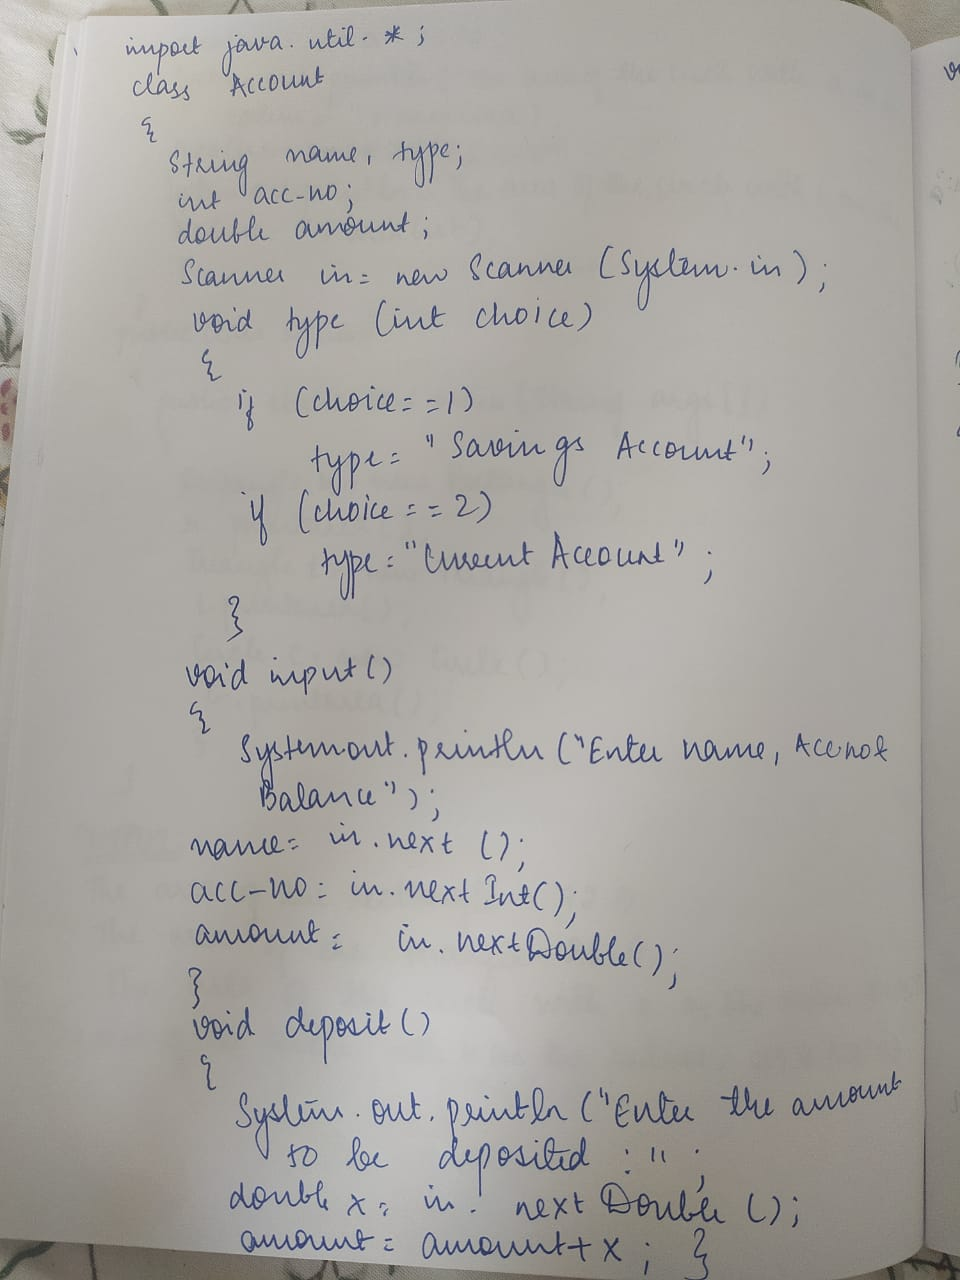 import java.util.*;
class Account
{
String name, type;
int acc-no;
double amount;
Scanner in= new Scanner (System.in);
void type (int choice)
{
if (choice==1)
type= "Savings Account";
if (choice==2)
type="Current Account";
}
void input()
{
System.out.println ("Enter name, Acc no &
Balance");
name= in.next ();
acc-no= in.next Int();
amount= in.nextDouble();
}
void deposit()
{
System.out.println ("Enter the amount
to be deposited : " ;
double x= in. next Double ();
amount= amount+x ; }